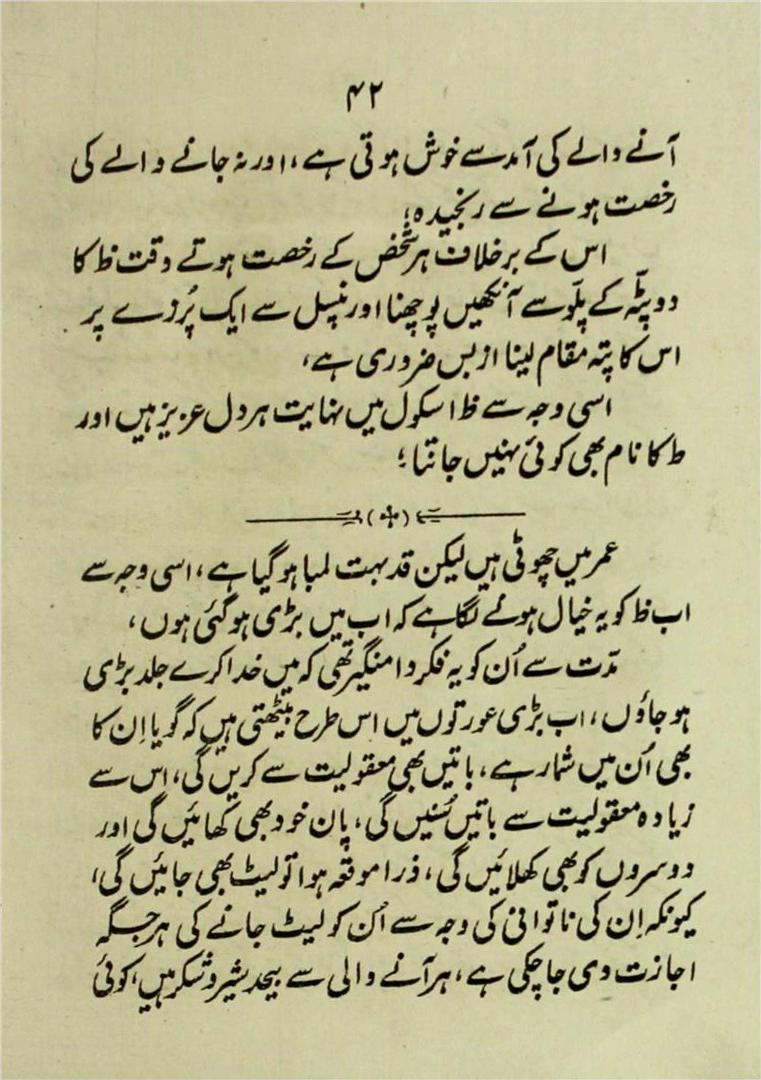 ۴۲
آنے والے کی آمد سے خوش ہوتی ہے، اور نہ جانے والے کی
رخصت ہونے سے رنجیدہ؛
اس کے برخلاف ہر شخص کے رخصت ہوتے وقت ظ کا
دوپٹّہ کے پلّو سے آنکھیں پوچھنا اور نپسل سے ایک پُرزے پر
اس کا پتہ مقام لینا ازبس ضروری ہے،
اسی وجہ سے ظ اسکول میں نہایت ہر دل عزیز ہیں اور
ط کا نام بھی کوئی نہیں جانتا؛
عمر میں چھوٹی ہیں لیکن قد بہت لمبا ہو گیا ہے، اسی وجہ سے
اب ظ کو یہ خیال ہونے لگا ہے کہ اب میں بڑی ہو گئی ہوں،
مدّت سے اُن کو یہ فکر دامنگیر تھی کہ میں خدا کرے جلد بڑی
ہو جاؤں، اب بڑی عورتوں میں اس طرح بیٹھتی ہیں کہ گویا اِن کا
بھی اُن میں شمار ہے، باتیں بھی معقولیت سے کریں گی، اس سے
زیادہ معقولیت سے باتیں سُنیں گی، پان خود بھی کھائیں گی اور
دوسروں کو بھی کھلائیں گی، ذرا موقعہ ہوا تو لیٹ بھی جائیں گی،
کیونکہ اِن کی ناتوانی کی وجہ سے اُن کو لیٹ جانے کی ہر جگہ
اجازت دی جا چکی ہے، ہر آنے والی سے بیحد شیر و شکر ہیں، کوئی